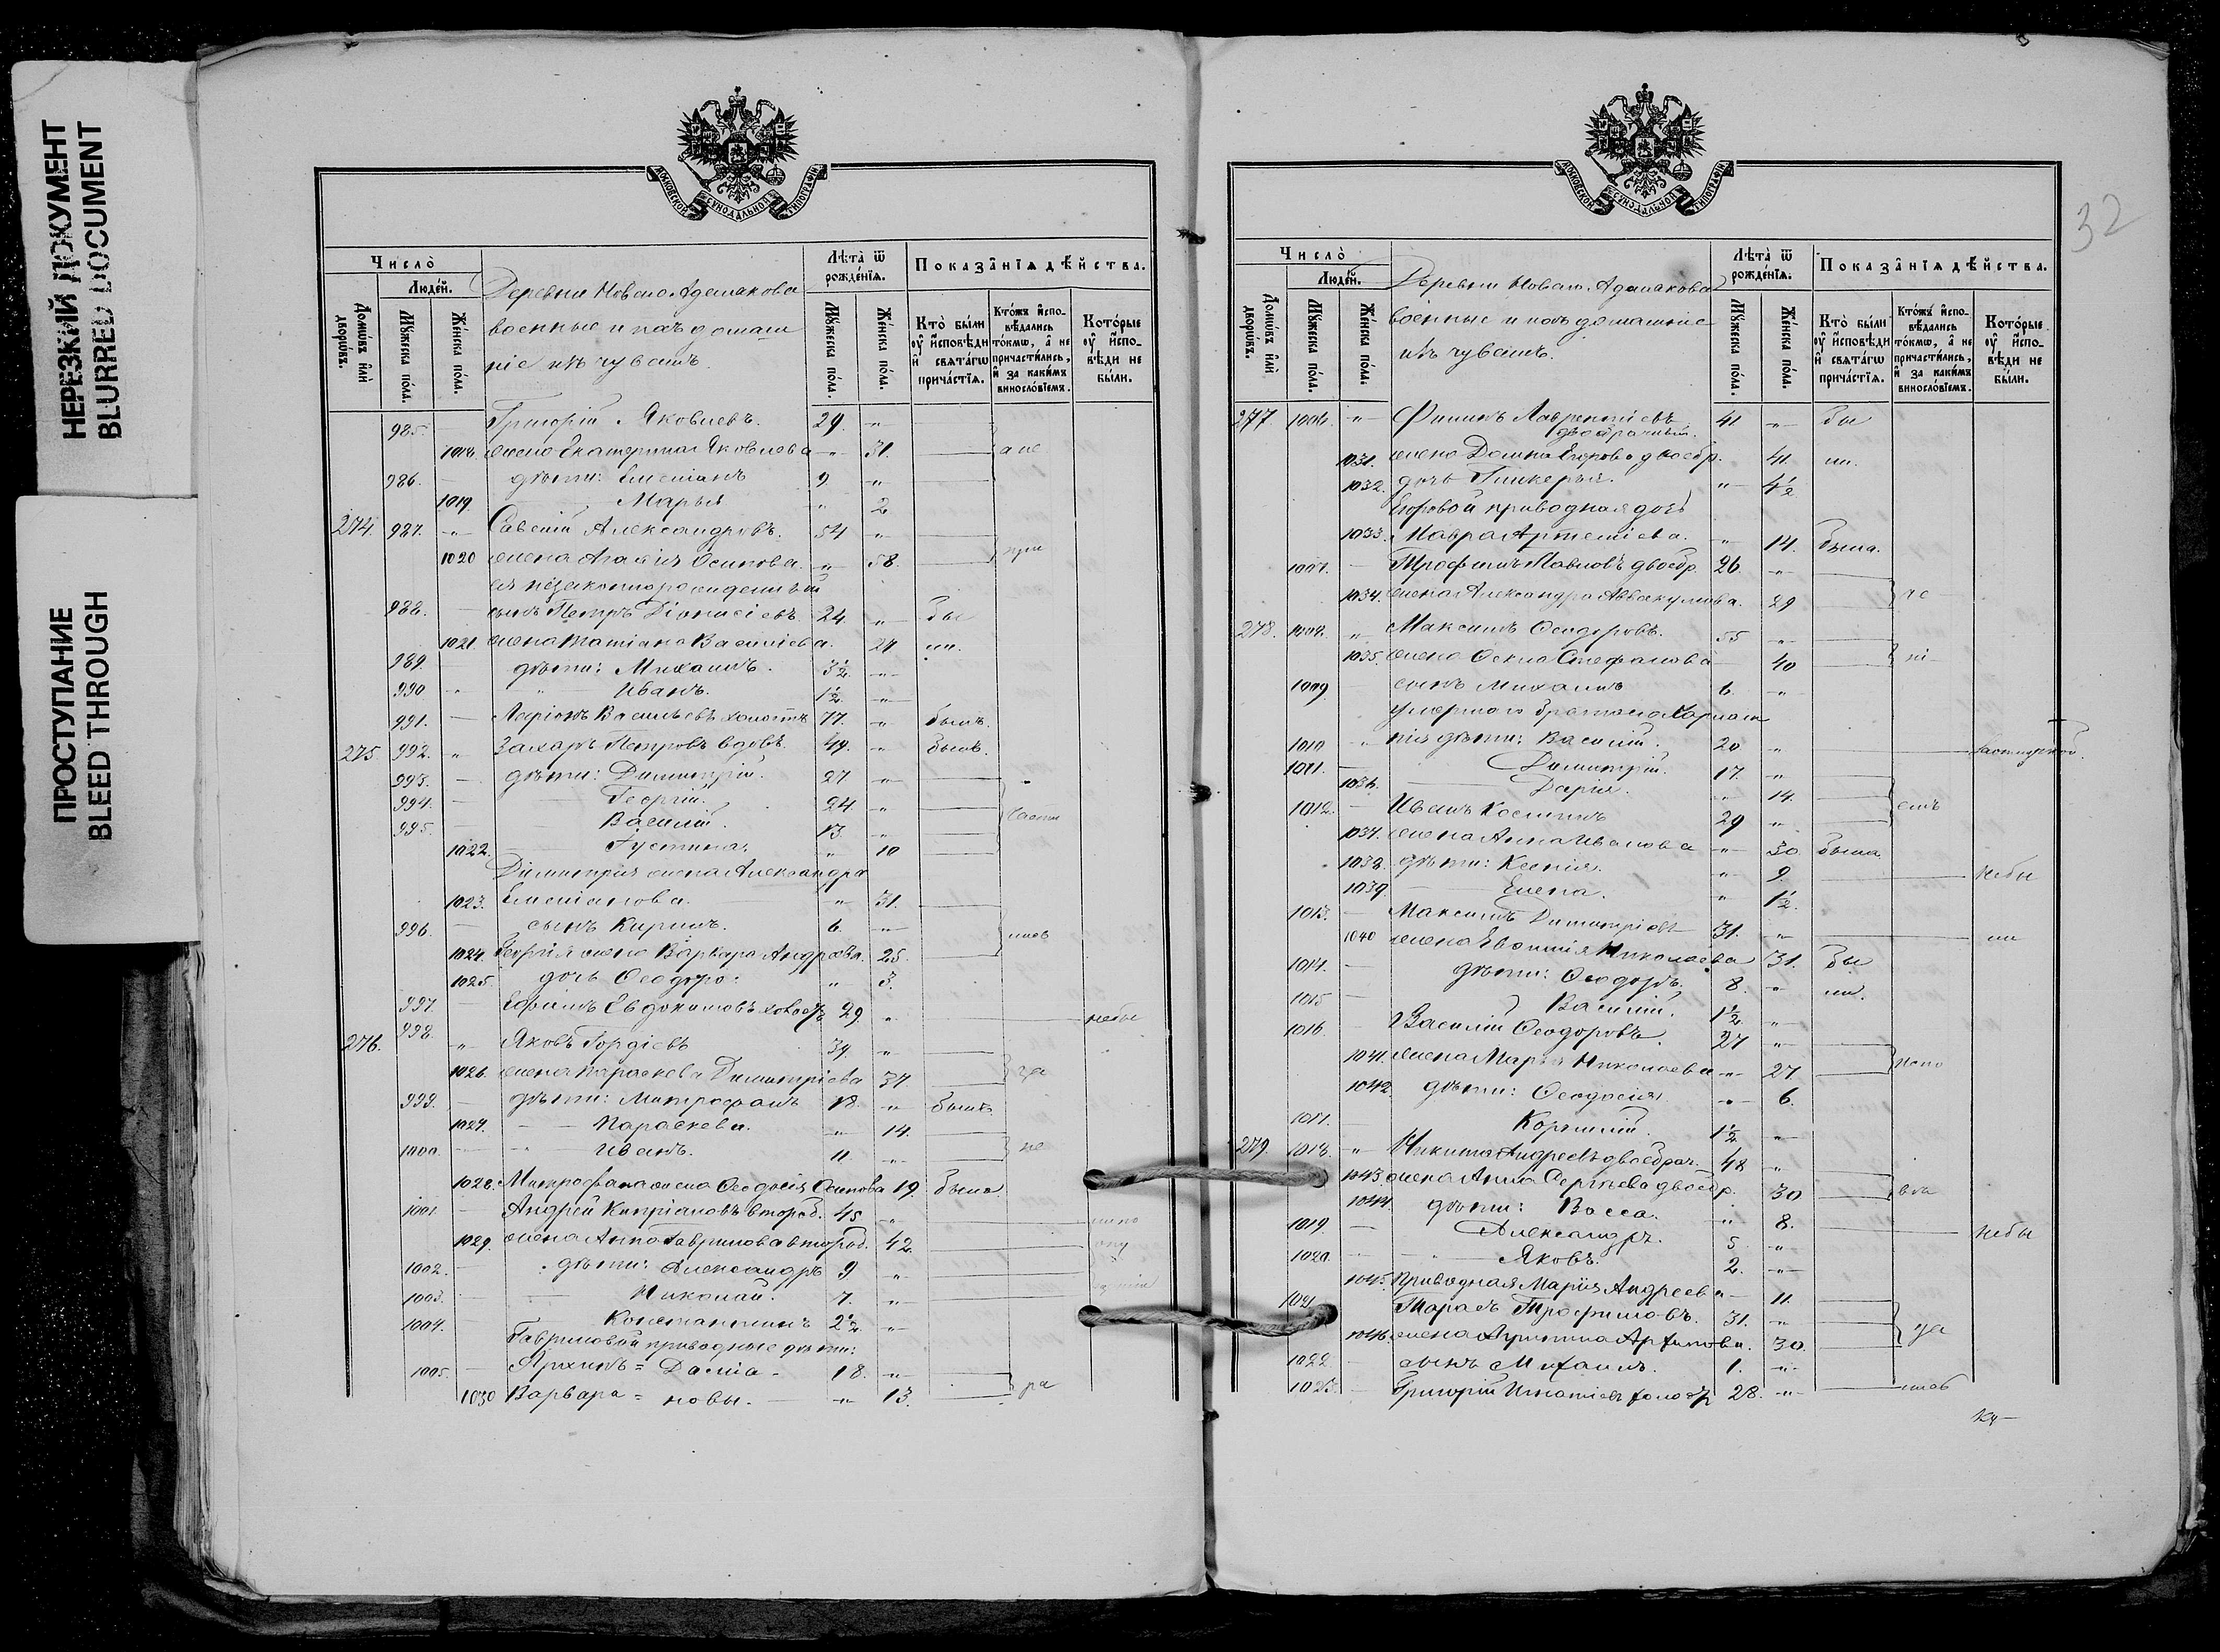 НЕРЕЗКИЙ ДОКУМЕНТ
BLURRED DOCUMENT
ПРОСТУПАНИЕ
BLEED THROUGH
МОСКОВСКОЙ СѴНОДАЛЬНОЙ ТИПОГРАФІИ
Число̀
Людей.
Домѡвъ илѝ дворѡвъ.
Мꙋжеска пола.
Женска пола.
Деревни Новаго Адамакова
военные и ихъ домаш
ніе изъ чувашъ.
Лѣта̀ ѿ рожденїѧ.
Мꙋжеска пола.
Женска пола.
Показанїѧ дѣйства.
Кто̀ были оу исповѣди и свѧтагѡ причастїѧ.
Ктожъ исповѣдались токмѡ, а не причастились, и за какимъ винословїемъ.
Которые оу исповѣди не были.
985. Григорій Яковлевъ. 29. "
1018. жена Екатерина Яковлева " 31. а не
986. дѣти: Емеліанъ 9 "
1019 Марья " 2
274. 987. " Савелій Александровъ. 54 "
1020 жена Агафія Осипова. " 58. при
ея незаконнорожденный
988. сынъ Петръ Діонисіевъ. 24. " Бы
1021. жена Татіана Васильева. 24 ли.
989. дѣти: Михаилъ. 3½ "
990 " Иванъ. 1½ "
991. Ларіонъ Васильевъ холостъ 77. " былъ.
275 992. " Захаръ Петровъ вдовъ. 49. " былъ.
993. дѣти: Димитрій. 27 "
994. Георгій. 24. "
995. Василій. 13. " части
1022. Іустина. " 10
Димитрія жена Александра
1023. Емеліанова. " 31.
996. сынъ Кирилъ. 6. " лись
1024. Георгія жена Варвара Андреева. 25.
1025. дочь Ѳеодора: " 3.
997. Ефимъ Евдокимовъ холостъ 29. " небы
276. 998. " Яковъ Гордіевъ 39. "
1026. жена Параскева Димитріева 37 за
999. дѣти: Митрофанъ 18. " былъ.
1027. Параскева. " 14.
1000. " Иванъ. 11. " не
1028. Митрофана жена Ѳеодосія Осипова 19. была
1001. Андрей Кипріановъ втораб. 45 "
1029. жена Анна Гаврилова втораб. 42
1002. дѣти: Александръ 9 "
1003. Николай. 7. "
1004. Константинъ 2½ "
Гавриловой приводные дѣти:
1005. Архипъ = Дамiа- 18. "
1030 Варвара = новы. " 13. ра
32
МОСКОВСКОЙ СѴНОДАЛЬНОЙ ТИПОГРАФІИ
Число̀
Людей.
Домѡвъ илѝ дворѡвъ.
Мꙋжеска пола.
Женска пола.
Деревни Новаго Адамакова
военные и ихъ домашніе
изъ чувашъ.
Лѣта̀ ѿ рожденїѧ.
Мꙋжеска пола.
Женска пола.
Показанїѧ дѣйства.
Кто̀ были оу исповѣди и свѧтагѡ причастїѧ.
Ктожъ исповѣдались токмѡ, а не причастились, и за какимъ винословїемъ.
Которые оу исповѣди не были.
277 1006. " Филипъ Лаврентіевъ 41 " бы
двоебрачный.
1031. жена Домна Егорова двоебр. 41. ли.
1032. дочь Гликерья. " 4½
Егоровой приводная дочь
1033. Мавра Артеміева. " 14. была.
1007. Трофимъ Павловъ двоебр. 26. "
1034. жена Александра Аввакумова. 29 не
278. 1008. " Максимъ Ѳеодоровъ. 55 "
1035. жена Ѳекла Стефанова 40
1009 сынъ Михаилъ 6. "
умершаго брата
1010 " дѣти: Василій. 20 "
1011. Димитрій. 17. "
1036. Дарія. " 14.
1012. Иванъ Косминъ 29 "
1037. жена Анна Иванова " 30 была
1038. дѣти: Ксенія. " 9. небы
1039 Елена. " 1½.
1013. Максимъ Димитріевъ 31. " ли
1040 жена Евѳимія Николаева 31. Бы
1014. дѣти: Ѳеодоръ. 8. " ли.
1015 Василій. 1½ "
1016 Василій Ѳеодоровъ. 27 "
1041. жена Марья Николаева " 27. испо
1042 дѣти: Ѳеодосія " 6.
1017. Корнилій. 1½ "
279. 1018. " Никита Андреевъ двоебрач. 48 "
1043. жена Анна Сергѣева двоебр. 30 вѣ
1044. дѣти: Васса. " 8.
1019 Александръ. 5 " небы
1020. Яковъ. 2. "
1045. приводная Марія Андреева 11.
1021 Тарасъ Трофимовъ. 31. "
1046. жена Архипова. 30. да
1022 сынъ Михаилъ. 1. "
1023. Григорій Игнатіевъ холостъ 28. " лись